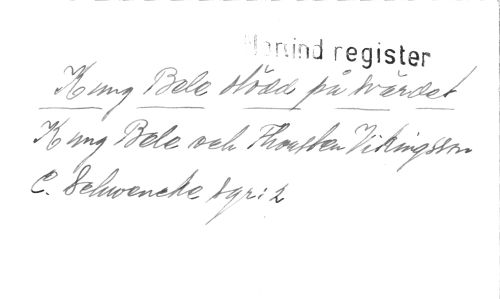 register
Kung Bele stödd på svärdet
Kung Bele och Thorsten Vikingsson
C. Schwencke sgr: 2